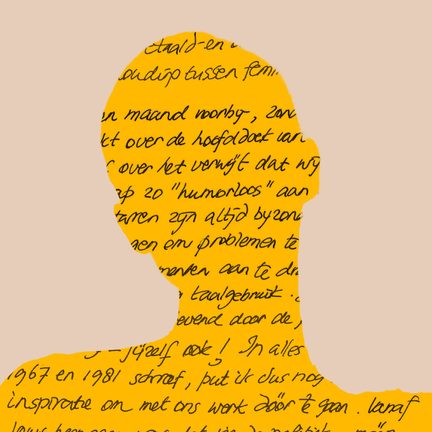 etaald-en
oudip tussen femi
en maand voorby, zond
kt over de hoofddoek van
over het verwijt dat wy
op zo "humorloos" aan
zyn altyd byzond
gen om problemen te
merken aan te dr
taalgebruik.
evend door de
- jyzelf ook! In alles
1967 en 1981 schreef, put ik dus nog
inspiratie om met ons werk dóór te gaan. Vanaf